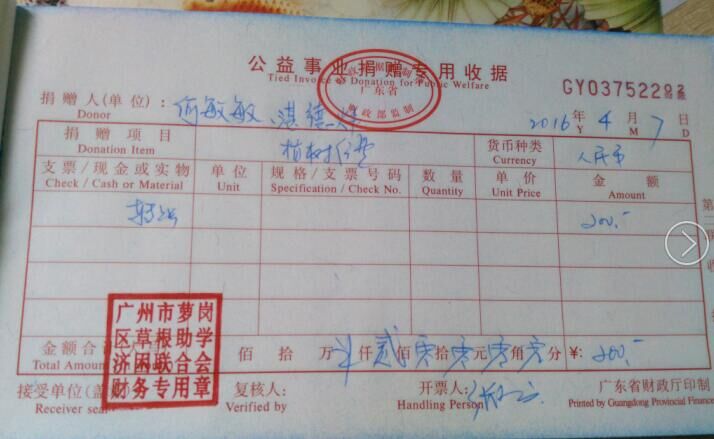 公益事业捐赠专用收据
Tied Invoice of Donation for Public Welfare
广东省
财政部监制
GY03752282
捐赠人(单位): 何敏敏 湛德
Donor
2016 年 4 月 7 日
Y M D
捐赠项目
Donation Item
植树
货币种类
Currency
人民币
支票/现金或实物
Check / Cash or Material
单位
Unit
规格/支票号码
Specification / Check No.
数量
Quantity
单价
Unit Price
金额
Amount
200.-
第二
收
金额合计
Total Amount
佰 拾 万 仟 贰 佰 零 拾 零 元 零 角 零 分 ¥: 200.-
广州市萝岗
区草根助学
济困联合会
财务专用章
接受单位(盖
Receiver seal
复核人:
Verified by
开票人:
Handling Person
广东省财政厅印制
Printed by Guangdong Provincial Finance